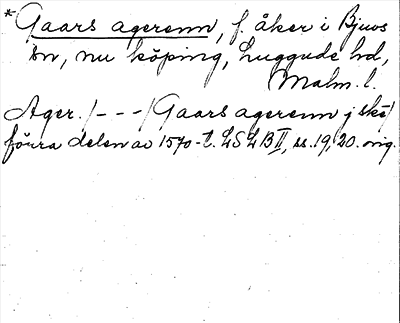 *Gaars agerenn, f. åker i Bjuvs
sn, nu köping, Luggude hd,
Malm. l.
Ager. /---/ Gaars agerenn j ske/
förra delen av 1570-t. LSLB II, ss. 19, 20. orig.